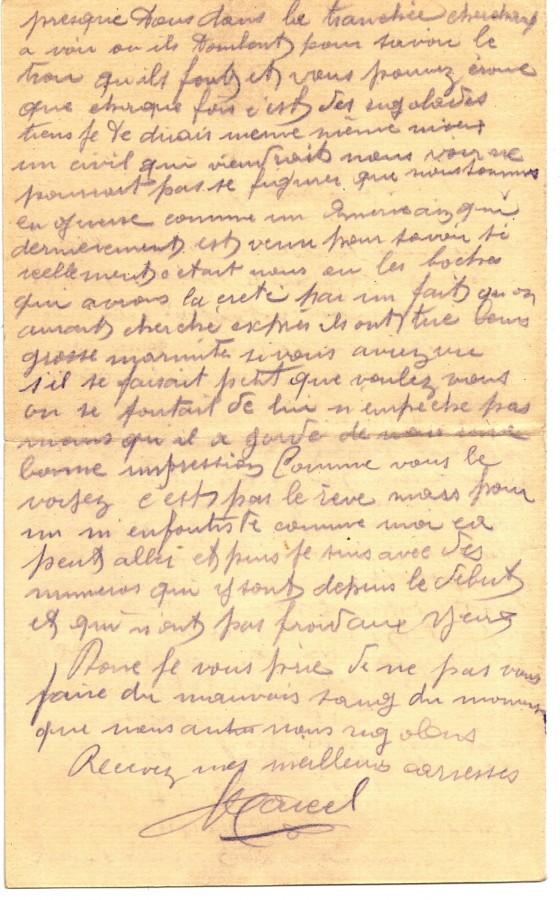 presque tous dans la tranchée cherchent
a voir ou ils tombent pour savoir le
trou qu ils font et vous pouvez croire
que chaque fois c'est des rigolades
tiens je te dirais meme mieux
un civil qui viendrait nous voir ne
pourrait pas se figurer que nous sommes
en guerre comme un Americain qui
dernierement est venu pour savoir si
reellement c'etait nous ou les boches
qui avions la crete par un fait qu on
aurait cherché exprès ils ont tiré leurs
grosse marmites si vous aviez vu
s'il se faisait petit que voulez vous
on se foutait de lui n empèche pas
qu il a garde de
bonne impression Comme vous le
voyez c'est pas le rève mais pour
un m enfoutiste comme moi ça
peut aller et puis je suis avec des
numeros qui y sont depuis le debut
et qui n ont pas froid aux yeux
Donc je vous prie de ne pas vous
faire du mauvais sang du moment
que nous autres nous rigolons
Recevez mes meilleurs caresses
Marcel